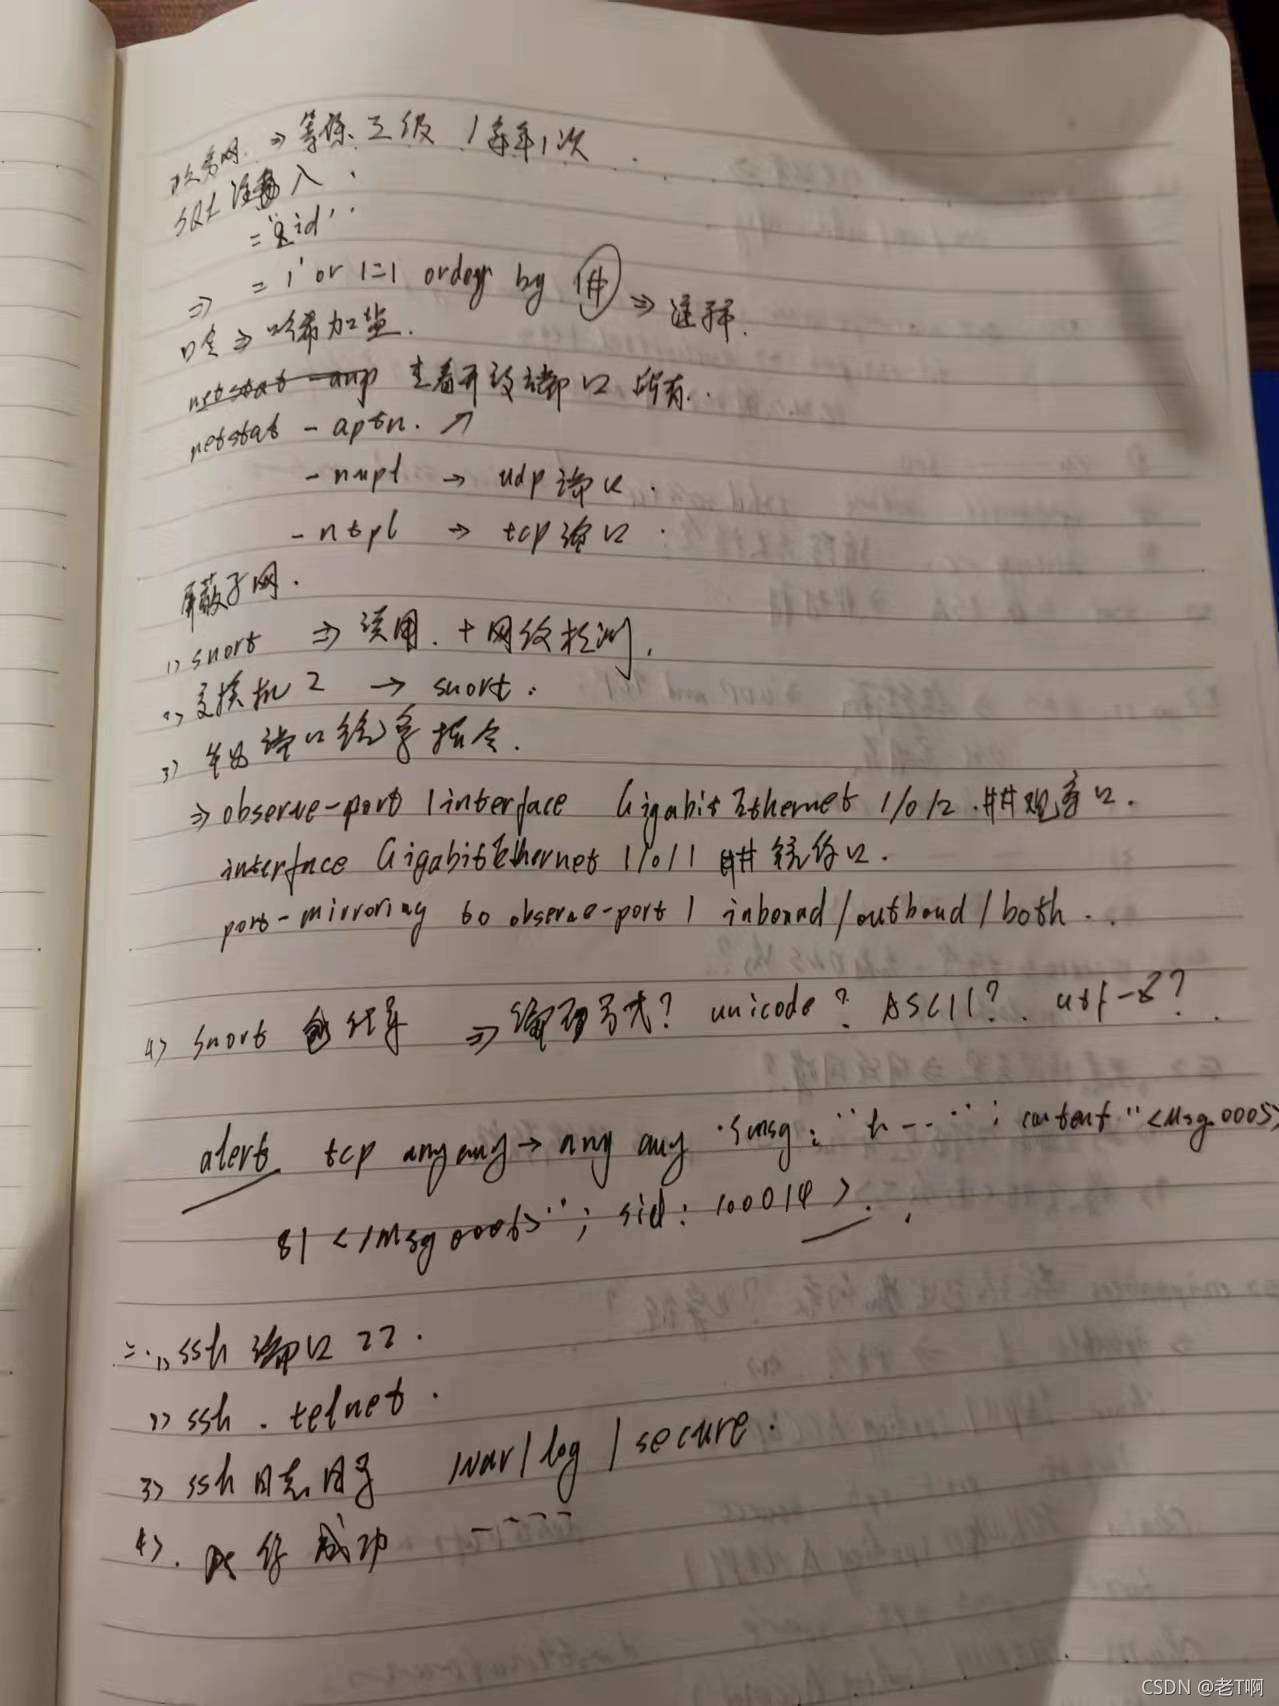 政务网 ⇒ 等保三级 1年1次
SQL 注入.
= '$id'.
⇒ = 1' or 1=1 order by # ⇒ 注释.
口令 ⇒ 哈希加盐.
netstat -anp 查看开放端口 所有.
netstat - aptn. ↗
- nupl → udp 端口.
- ntpl → tcp 端口.
屏蔽子网.
1) snort ⇒ 误用 + 网络检测.
2) 交换机2 → snort.
3) 端口镜像指令.
⇒ observe-port 1 interface GigabitEthernet 1/0/2 ## 观察口.
interface GigabitEthernet 1/0/1 ## 镜像口.
port-mirroring to observe-port 1 inbound/outboud/both.
4) snort ⇒ 编码方式? unicode? ASCII? utf-8?
alert tcp any any → any any msg: "h--"; content "<Msg.0005>
81 </Msg 0005>"; sid: 100014>.
二. 1) ssh 端口 22.
2) ssh . telnet.
3) ssh 日志目录 /var/log/secure.
4). 成功 -----
CSDN @老T啊